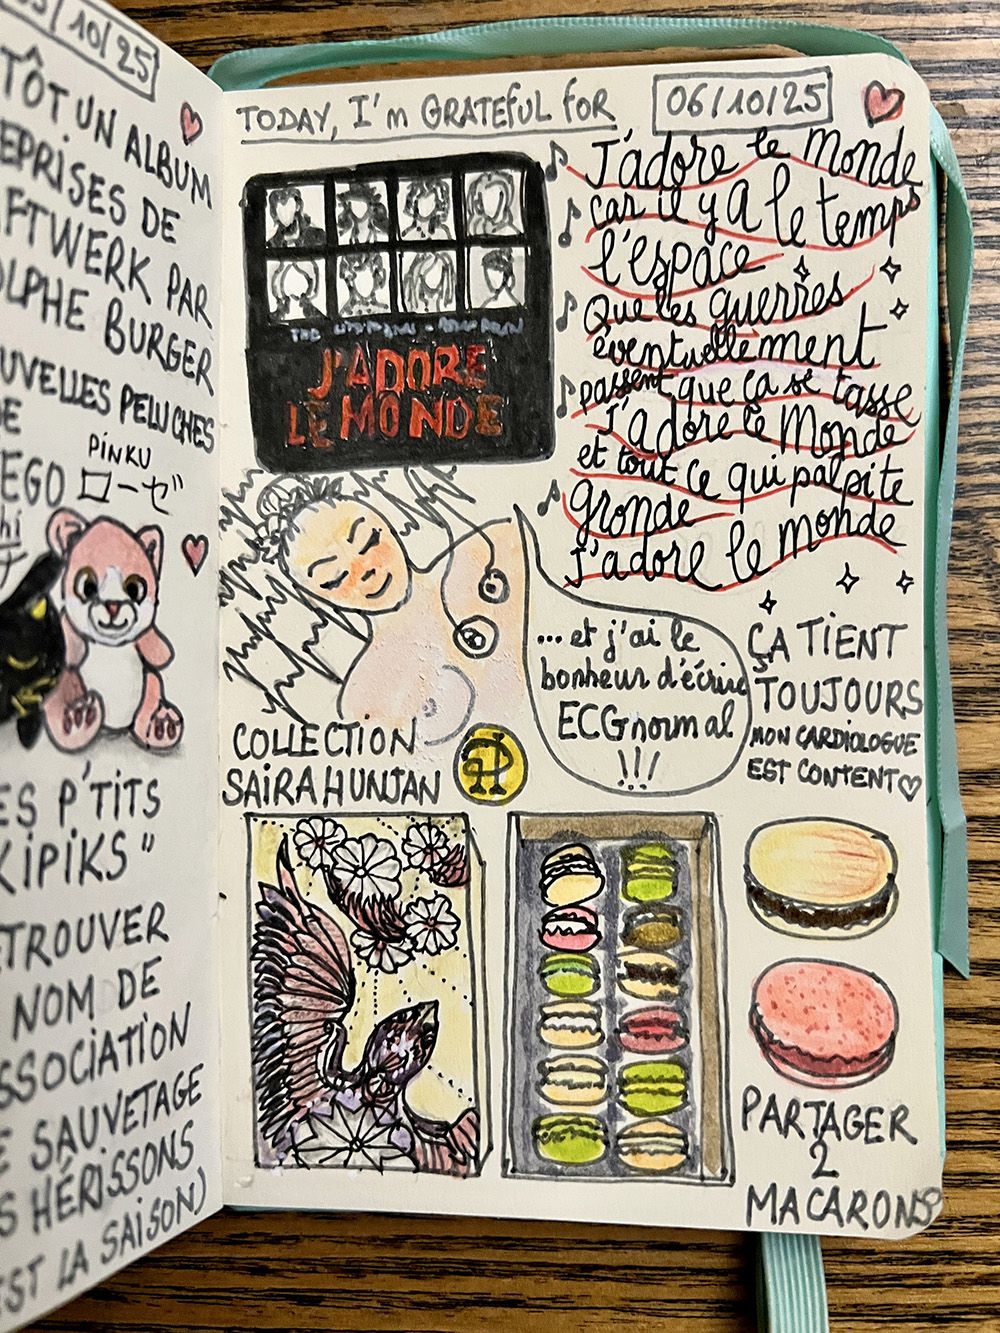 10/25
TÔT UN ALBUM
REPRISES DE
AFTWERK PAR
OLPHE BURGER
OUVELLES PELUCHES
DE
EGO
PiNKU
ローゼ
hi
ES P'TITS
KiPiKS"
ETROUVER
NOM DE
SSOCiATiON
E SAUVETAGE
S HÉRiSSONS
EST LA SAiSON)
TODAY, I'm GRATEfUL foR
06/10/25
J'ADORE
LE MONDE
J'adore le Monde
car il y a le temps
l'espace
Que les guerres
éventuellement
passent que ça se tasse
J'adore le Monde
et tout ce qui palpite
gronde
J'adore le monde
...et j'ai le
bonheur d'écrire
ECG normal
!!!
ÇA TiENT
TOUJOURS
MON CARDiOLOGUE
EST CONTENT
COLLECTiON
SAiRA HUNJAN
PARTAGER
2
MACARONS